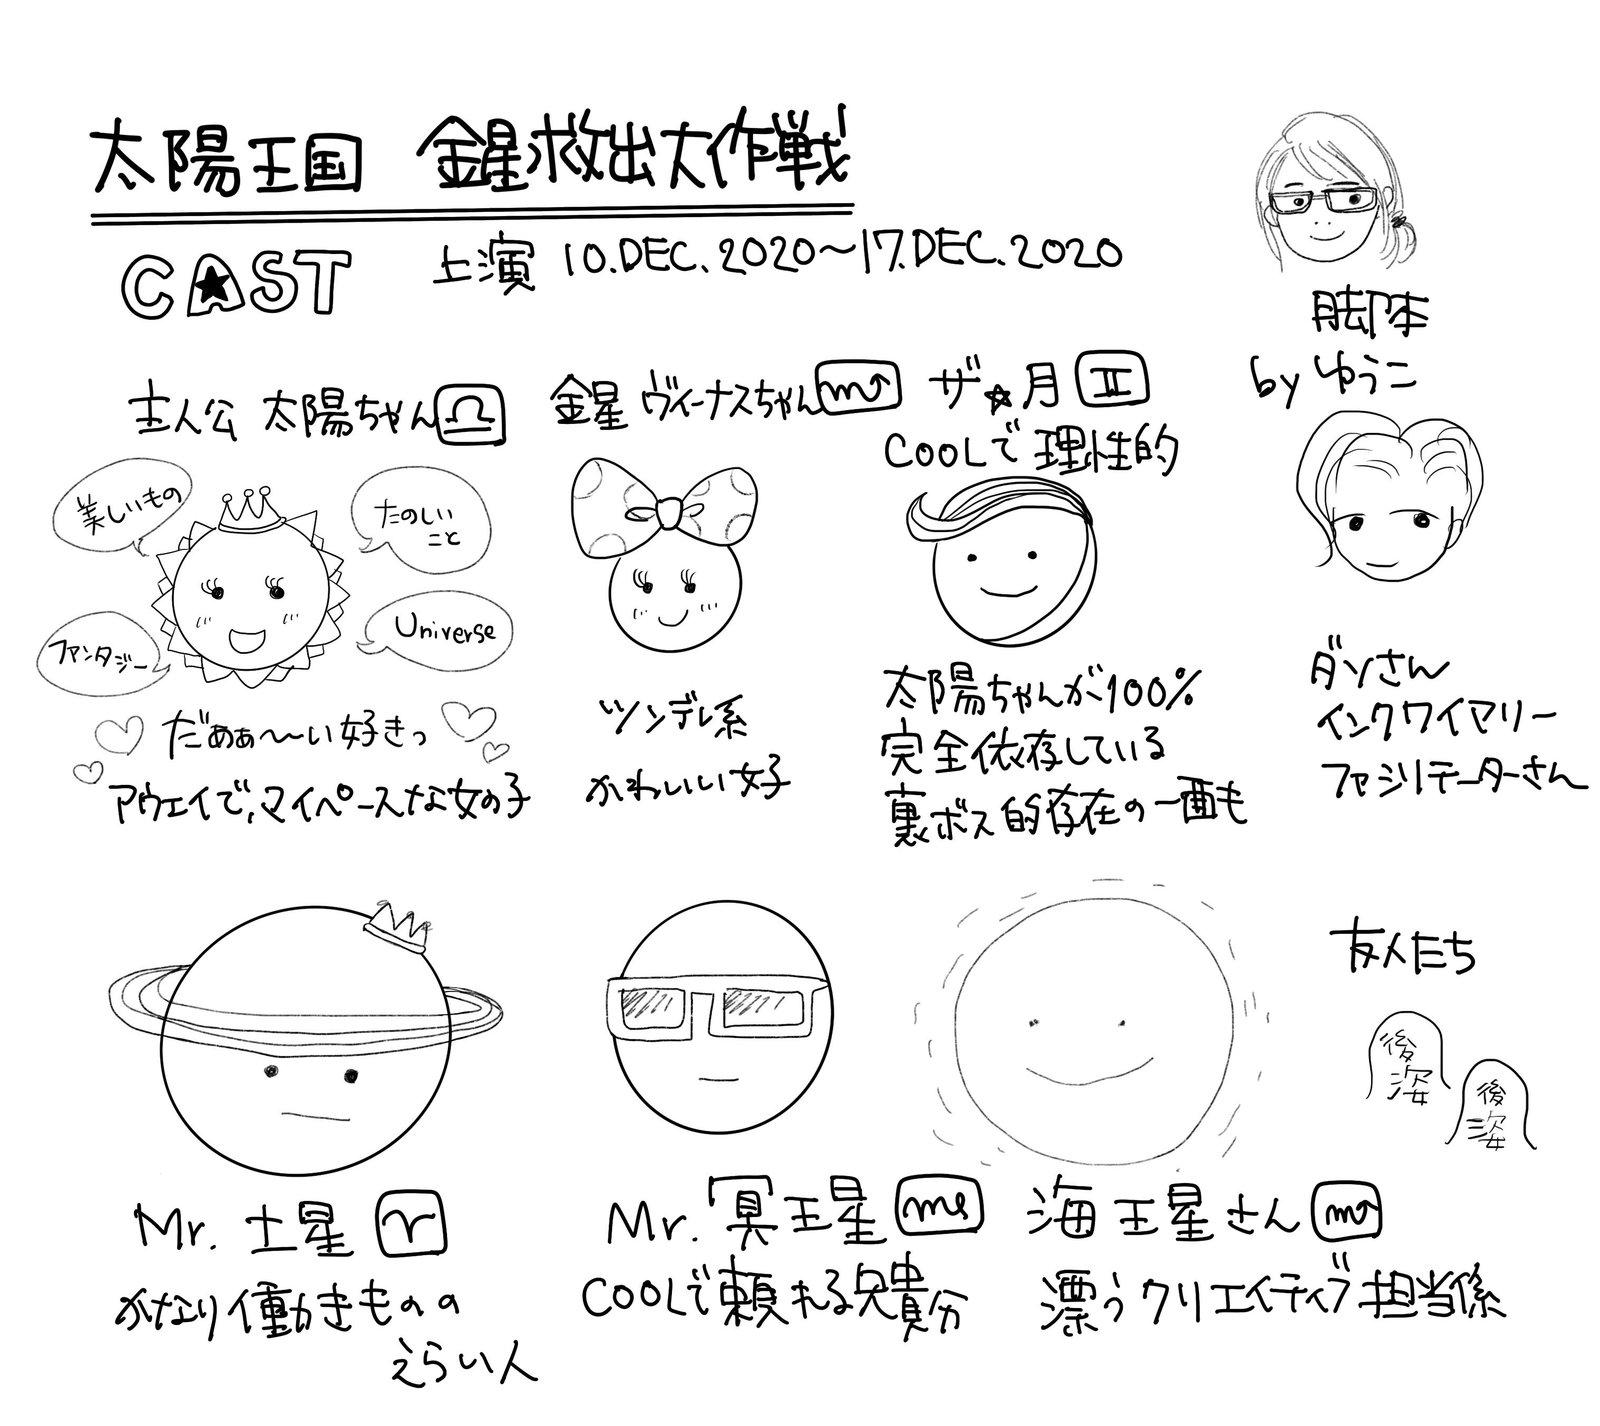 太陽王国 金星救出大作戦
CAST
上演 10.DEC.2020〜17.DEC.2020
脚本
by ゆうこ
主人公 太陽ちゃん ♎
美しいもの
たのしい
こと
ファンタジー
Universe
だぁぁ〜〜い好きっ
アウェイで、マイペースな女の子
金星 ヴィーナスちゃん ♏
ツンデレ系
かわいい女子
ザ★月 Ⅱ
COOLで理性的
太陽ちゃんが100%
完全依存している
裏ボス的存在の一面も
ダンさん
インクワイアリー
ファシリテーターさん
Mr. 土星 ♈
かなり働きものの
えらい人
Mr. 冥王星
COOLで頼れる兄貴分
海王星さん ♏
漂うクリエイティブ担当係
友人たち
後
姿
後
姿